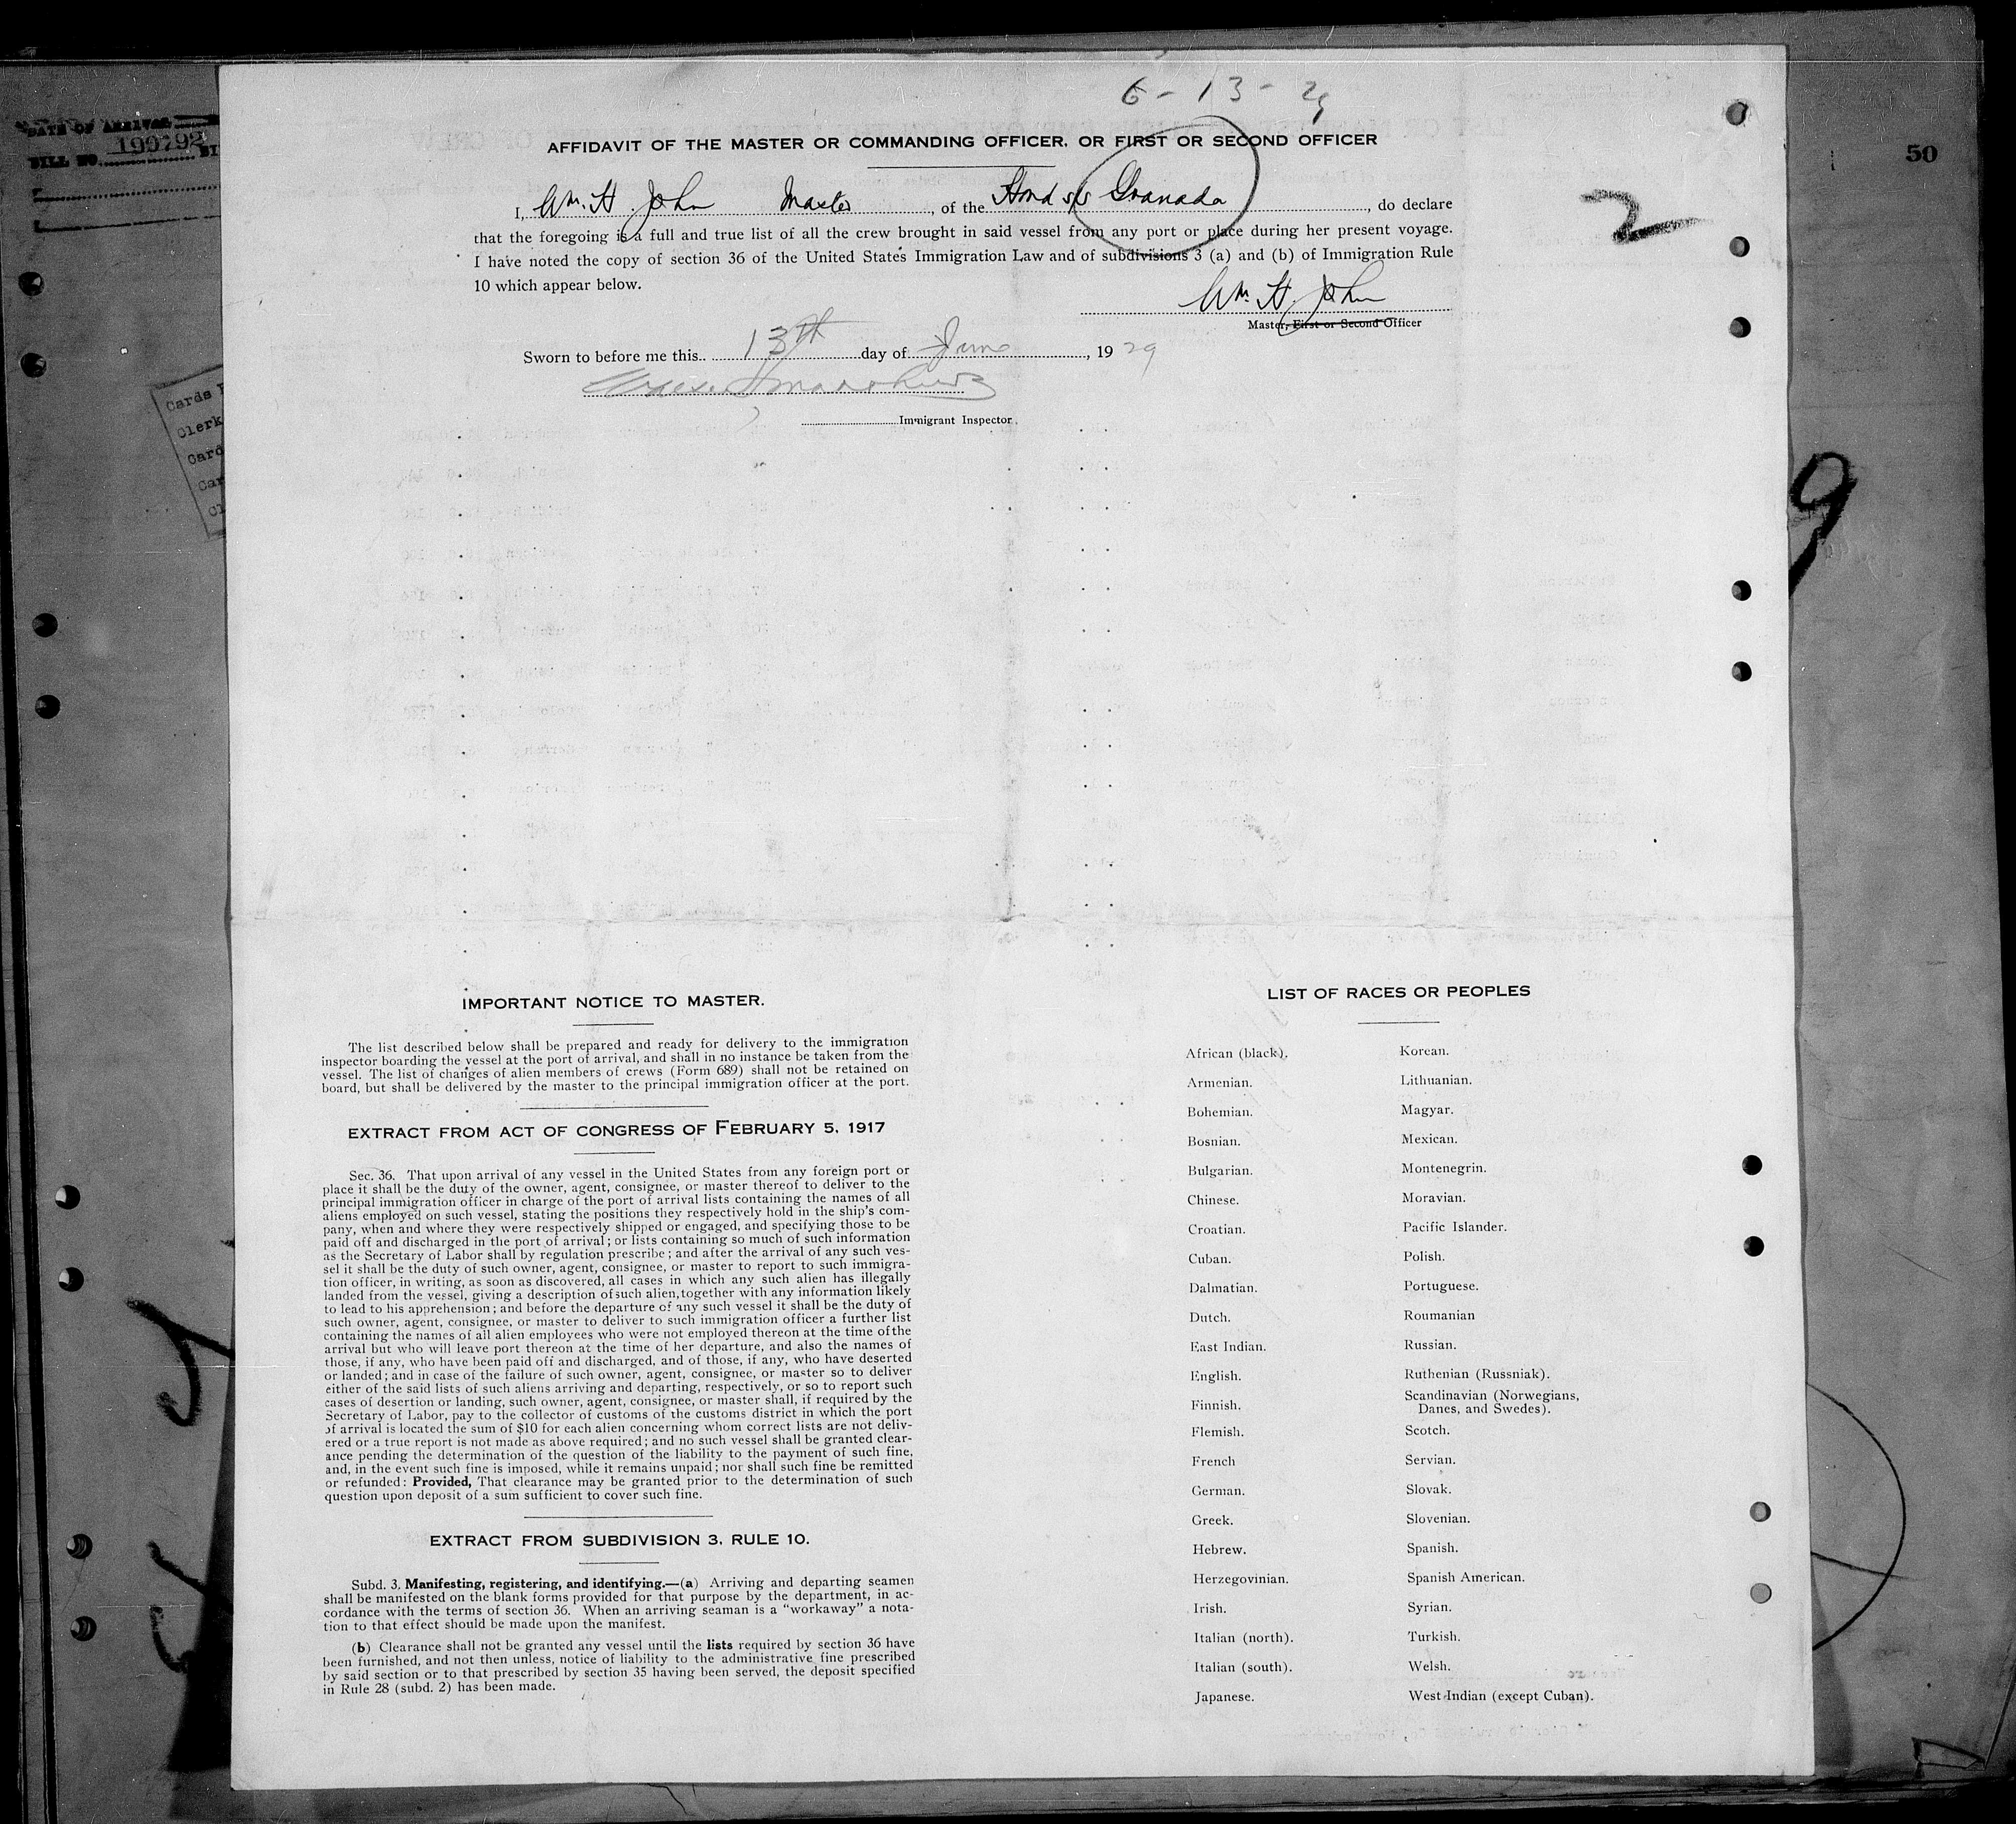 6 - 13 - 29
DATE OF ARRIVAL
BILL NO. 190792 BI
50
AFFIDAVIT OF THE MASTER OR COMMANDING OFFICER, OR FIRST OR SECOND OFFICER
I, Wm. H. John Master, of the Hond s/s Granada, do declare
that the foregoing is a full and true list of all the crew brought in said vessel from any port or place during her present voyage.
I have noted the copy of section 36 of the United States Immigration Law and of subdivisions 3 (a) and (b) of Immigration Rule
10 which appear below.
2
Wm. H. John
Master, First or Second Officer
Sworn to before me this 13th day of June, 1929
Immigrant Inspector.
Cards
Clerk
Card
Car
Cl
9
IMPORTANT NOTICE TO MASTER.
The list described below shall be prepared and ready for delivery to the immigration
inspector boarding the vessel at the port of arrival, and shall in no instance be taken from the
vessel. The list of changes of alien members of crews (Form 689) shall not be retained on
board, but shall be delivered by the master to the principal immigration officer at the port.
EXTRACT FROM ACT OF CONGRESS OF FEBRUARY 5, 1917
Sec. 36. That upon arrival of any vessel in the United States from any foreign port or
place it shall be the duty of the owner, agent, consignee, or master thereof to deliver to the
principal immigration officer in charge of the port of arrival lists containing the names of all
aliens employed on such vessel, stating the positions they respectively hold in the ship's com-
pany, when and where they were respectively shipped or engaged, and specifying those to be
paid off and discharged in the port of arrival; or lists containing so much of such information
as the Secretary of Labor shall by regulation prescribe; and after the arrival of any such ves-
sel it shall be the duty of such owner, agent, consignee, or master to report to such immigra-
tion officer, in writing, as soon as discovered, all cases in which any such alien has illegally
landed from the vessel, giving a description of such alien, together with any information likely
to lead to his apprehension; and before the departure of any such vessel it shall be the duty of
such owner, agent, consignee, or master to deliver to such immigration officer a further list
containing the names of all alien employees who were not employed thereon at the time of the
arrival but who will leave port thereon at the time of her departure, and also the names of
those, if any, who have been paid off and discharged, and of those, if any, who have deserted
or landed; and in case of the failure of such owner, agent, consignee, or master so to deliver
either of the said lists of such aliens arriving and departing, respectively, or so to report such
cases of desertion or landing, such owner, agent, consignee, or master shall, if required by the
Secretary of Labor, pay to the collector of customs of the customs district in which the port
of arrival is located the sum of $10 for each alien concerning whom correct lists are not deliv-
ered or a true report is not made as above required; and no such vessel shall be granted clear-
ance pending the determination of the question of the liability to the payment of such fine,
and, in the event such fine is imposed, while it remains unpaid; nor shall such fine be remitted
or refunded: Provided, That clearance may be granted prior to the determination of such
question upon deposit of a sum sufficient to cover such fine.
EXTRACT FROM SUBDIVISION 3, RULE 10.
Subd. 3. Manifesting, registering, and identifying.—(a) Arriving and departing seamen
shall be manifested on the blank forms provided for that purpose by the department, in ac-
cordance with the terms of section 36. When an arriving seaman is a "workaway" a nota-
tion to that effect should be made upon the manifest.
(b) Clearance shall not be granted any vessel until the lists required by section 36 have
been furnished, and not then unless, notice of liability to the administrative fine prescribed
by said section or to that prescribed by section 35 having been served, the deposit specified
in Rule 28 (subd. 2) has been made.
LIST OF RACES OR PEOPLES
African (black).
Armenian.
Bohemian.
Bosnian.
Bulgarian.
Chinese.
Croatian.
Cuban.
Dalmatian.
Dutch.
East Indian.
English.
Finnish.
Flemish.
French
German.
Greek.
Hebrew.
Herzegovinian.
Irish.
Italian (north).
Italian (south).
Japanese.
Korean.
Lithuanian.
Magyar.
Mexican.
Montenegrin.
Moravian.
Pacific Islander.
Polish.
Portuguese.
Roumanian
Russian.
Ruthenian (Russniak).
Scandinavian (Norwegians,
Danes, and Swedes).
Scotch.
Servian.
Slovak.
Slovenian.
Spanish.
Spanish American.
Syrian.
Turkish.
Welsh.
West Indian (except Cuban).